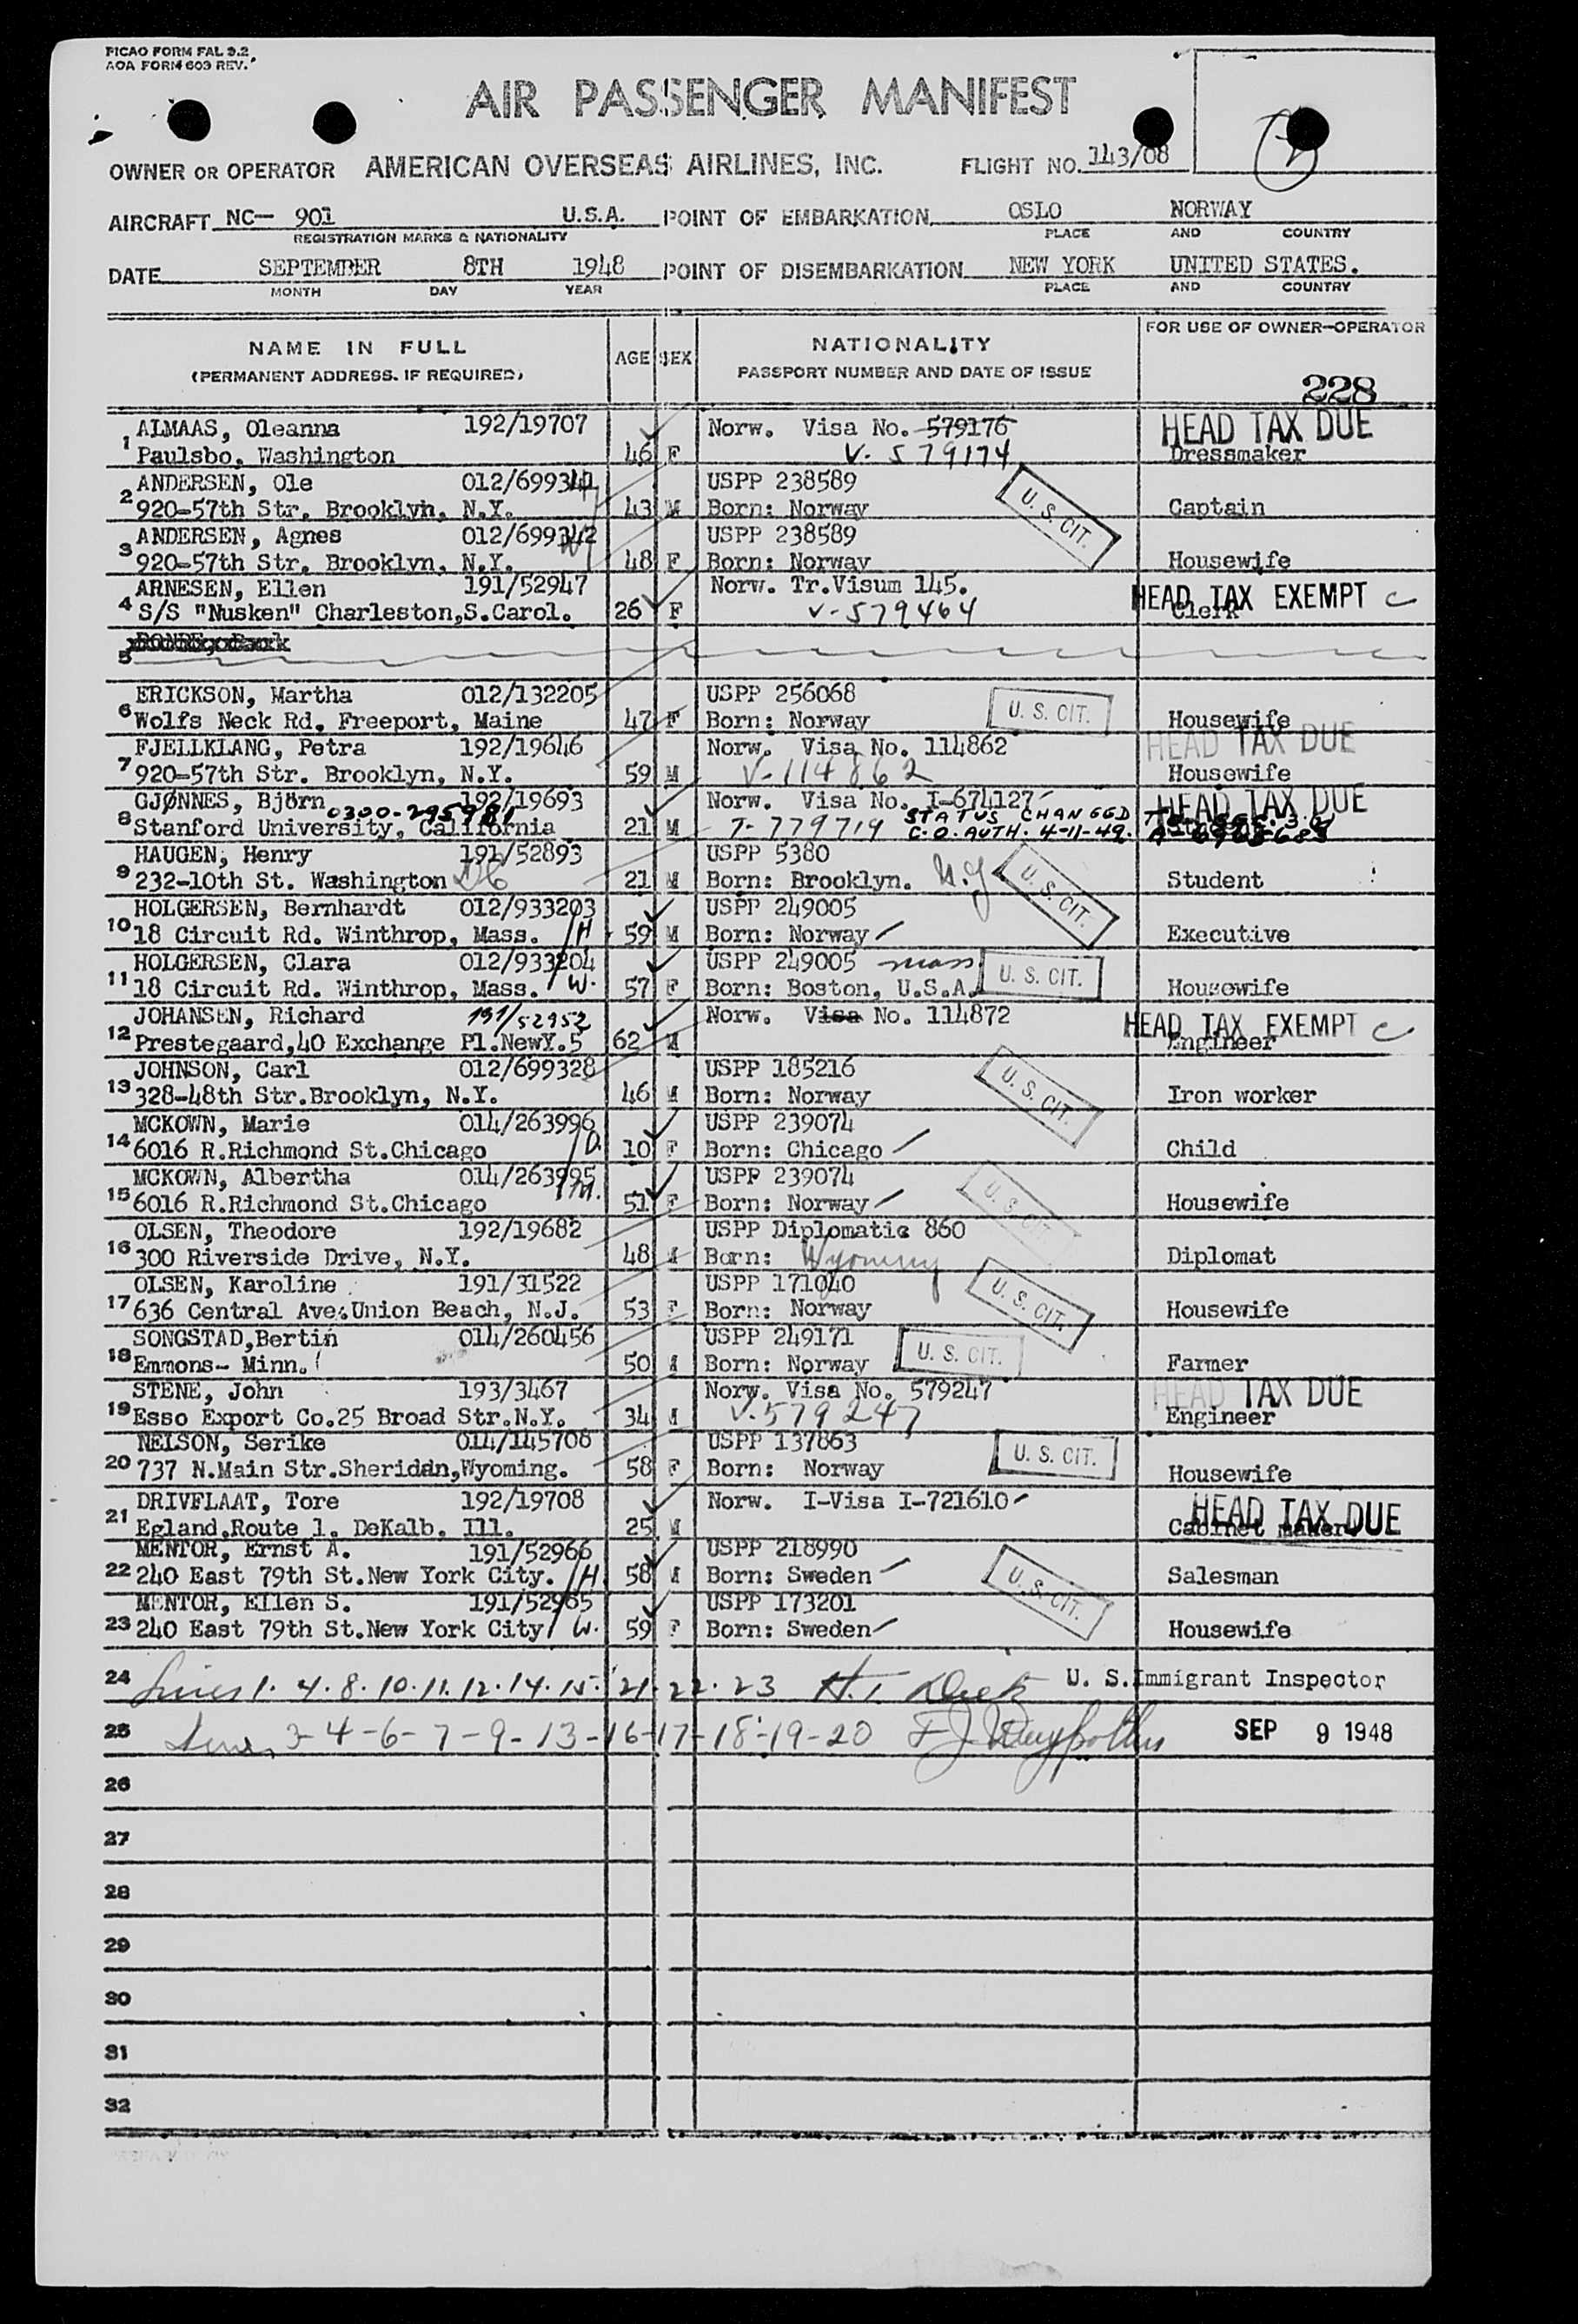 PICAO FORM FAL 9.2
AOA FORM 603 REV.
AIR PASSENGER MANIFEST
OWNER OR OPERATOR AMERICAN OVERSEAS AIRLINES, INC. FLIGHT NO. 143/08
AIRCRAFT NC— 901 U.S.A. POINT OF EMBARKATION OSLO NORWAY
REGISTRATION MARKS & NATIONALITY PLACE AND COUNTRY
DATE SEPTEMBER 8TH 1948 POINT OF DISEMBARKATION NEW YORK UNITED STATES.
MONTH DAY YEAR PLACE AND COUNTRY
NAME IN FULL AGE SEX NATIONALITY FOR USE OF OWNER-OPERATOR
(PERMANENT ADDRESS. IF REQUIRED) PASSPORT NUMBER AND DATE OF ISSUE
228
ALMAAS, Oleanna 192/19707 Norw. Visa No. 579176 HEAD TAX DUE
1 Paulsbo, Washington 46 F V. 579174 Dressmaker
ANDERSEN, Ole USPP 238589 U. S. CIT.
2 920-57th Str. Brooklyn, N.Y. 43 M Born: Norway Captain
ANDERSEN, Agnes 012/699342 USPP 238589
3 920-57th Str. Brooklyn, N.Y. 48 F Born: Norway Housewife
ARNESEN, Ellen 191/52947 Norw. Tr.Visum 145. HEAD TAX EXEMPT C
4 S/S "Nusken" Charleston,S.Carol. 26 F V-579464 Clerk
5
ERICKSON, Martha 012/132205 USPP 256068 U. S. CIT.
6 Wolfs Neck Rd. Freeport, Maine 47 F Born: Norway Housewife
FJELLKLANG, Petra 192/19646 Norw. Visa No. 114862 HEAD TAX DUE
7 920-57th Str. Brooklyn, N.Y. 59 M V-114862 Housewife
GJØNNES, Björn 192/19693 Norw. Visa No. I-674127 HEAD TAX DUE
0300-295981 STATUS CHANGED
8 Stanford University, California 21 M T-779719 C.O. AUTH. 4-11-49.
HAUGEN, Henry 191/52893 USPP 5380 U. S. CIT.
9 232-10th St. Washington DC 21 M Born: Brooklyn. N.Y Student
HOLGERSEN, Bernhardt 012/933203 USPP 249005
10 18 Circuit Rd. Winthrop, Mass. /H 59 M Born: Norway Executive
HOLGERSEN, Clara 012/933204 USPP 249005 mass U. S. CIT.
11 18 Circuit Rd. Winthrop, Mass. / W. 57 F Born: Boston, U.S.A. Housewife
JOHANSEN, Richard 191/52952 Norw. Visa No. 114872 HEAD TAX EXEMPT C
12 Prestegaard,40 Exchange Pl.NewY.5 62 M Engineer
JOHNSON, Carl 012/699328 USPP 185216 U. S. CIT.
13 328-48th Str.Brooklyn, N.Y. 46 M Born: Norway Iron worker
MCKOWN, Marie 014/263996 USPP 239074
14 6016 R.Richmond St.Chicago /D. 10 F Born: Chicago Child
MCKOWN, Albertha 014/263995 USPP 239074 U. S. CIT.
15 6016 R.Richmond St.Chicago /M. 51 F Born: Norway Housewife
OLSEN, Theodore 192/19682 USPP Diplomatic 860
16 300 Riverside Drive, N.Y. 48 M Born: Wyoming Diplomat
OLSEN, Karoline 191/31522 USPP 171040 U. S. CIT.
17 636 Central Ave.Union Beach, N.J. 53 F Born: Norway Housewife
SONGSTAD,Bertin 014/260456 USPP 249171 U. S. CIT.
18 Emmons- Minn. 50 M Born: Norway Farmer
STENE, John 193/3467 Norw. Visa No. 579247 HEAD TAX DUE
19 Esso Export Co.25 Broad Str.N.Y. 34 M V.579247 Engineer
NELSON, Serike 014/145708 USPP 137863 U. S. CIT.
20 737 N.Main Str.Sheridan,Wyoming. 58 F Born: Norway Housewife
DRIVFLAAT, Tore 192/19708 Norw. I-Visa I-721610 HEAD TAX DUE
21 Egland,Route 1. DeKalb, Ill. 25 M Cabinet maker
MENTOR, Ernst A. 191/52966 USPP 218990 U. S. CIT.
22 240 East 79th St.New York City. /H 58 M Born: Sweden Salesman
MENTOR, Ellen S. 191/52965 USPP 173201
23 240 East 79th St.New York City/ W. 59 F Born: Sweden Housewife
24 Lines 1. 4. 8. 10. 11. 12. 14. 15. 21. 22. 23 U. S. Immigrant Inspector
25 Lines 3-4-6-7-9-13-16-17-18-19-20 SEP 9 1948
26
27
28
29
30
31
32